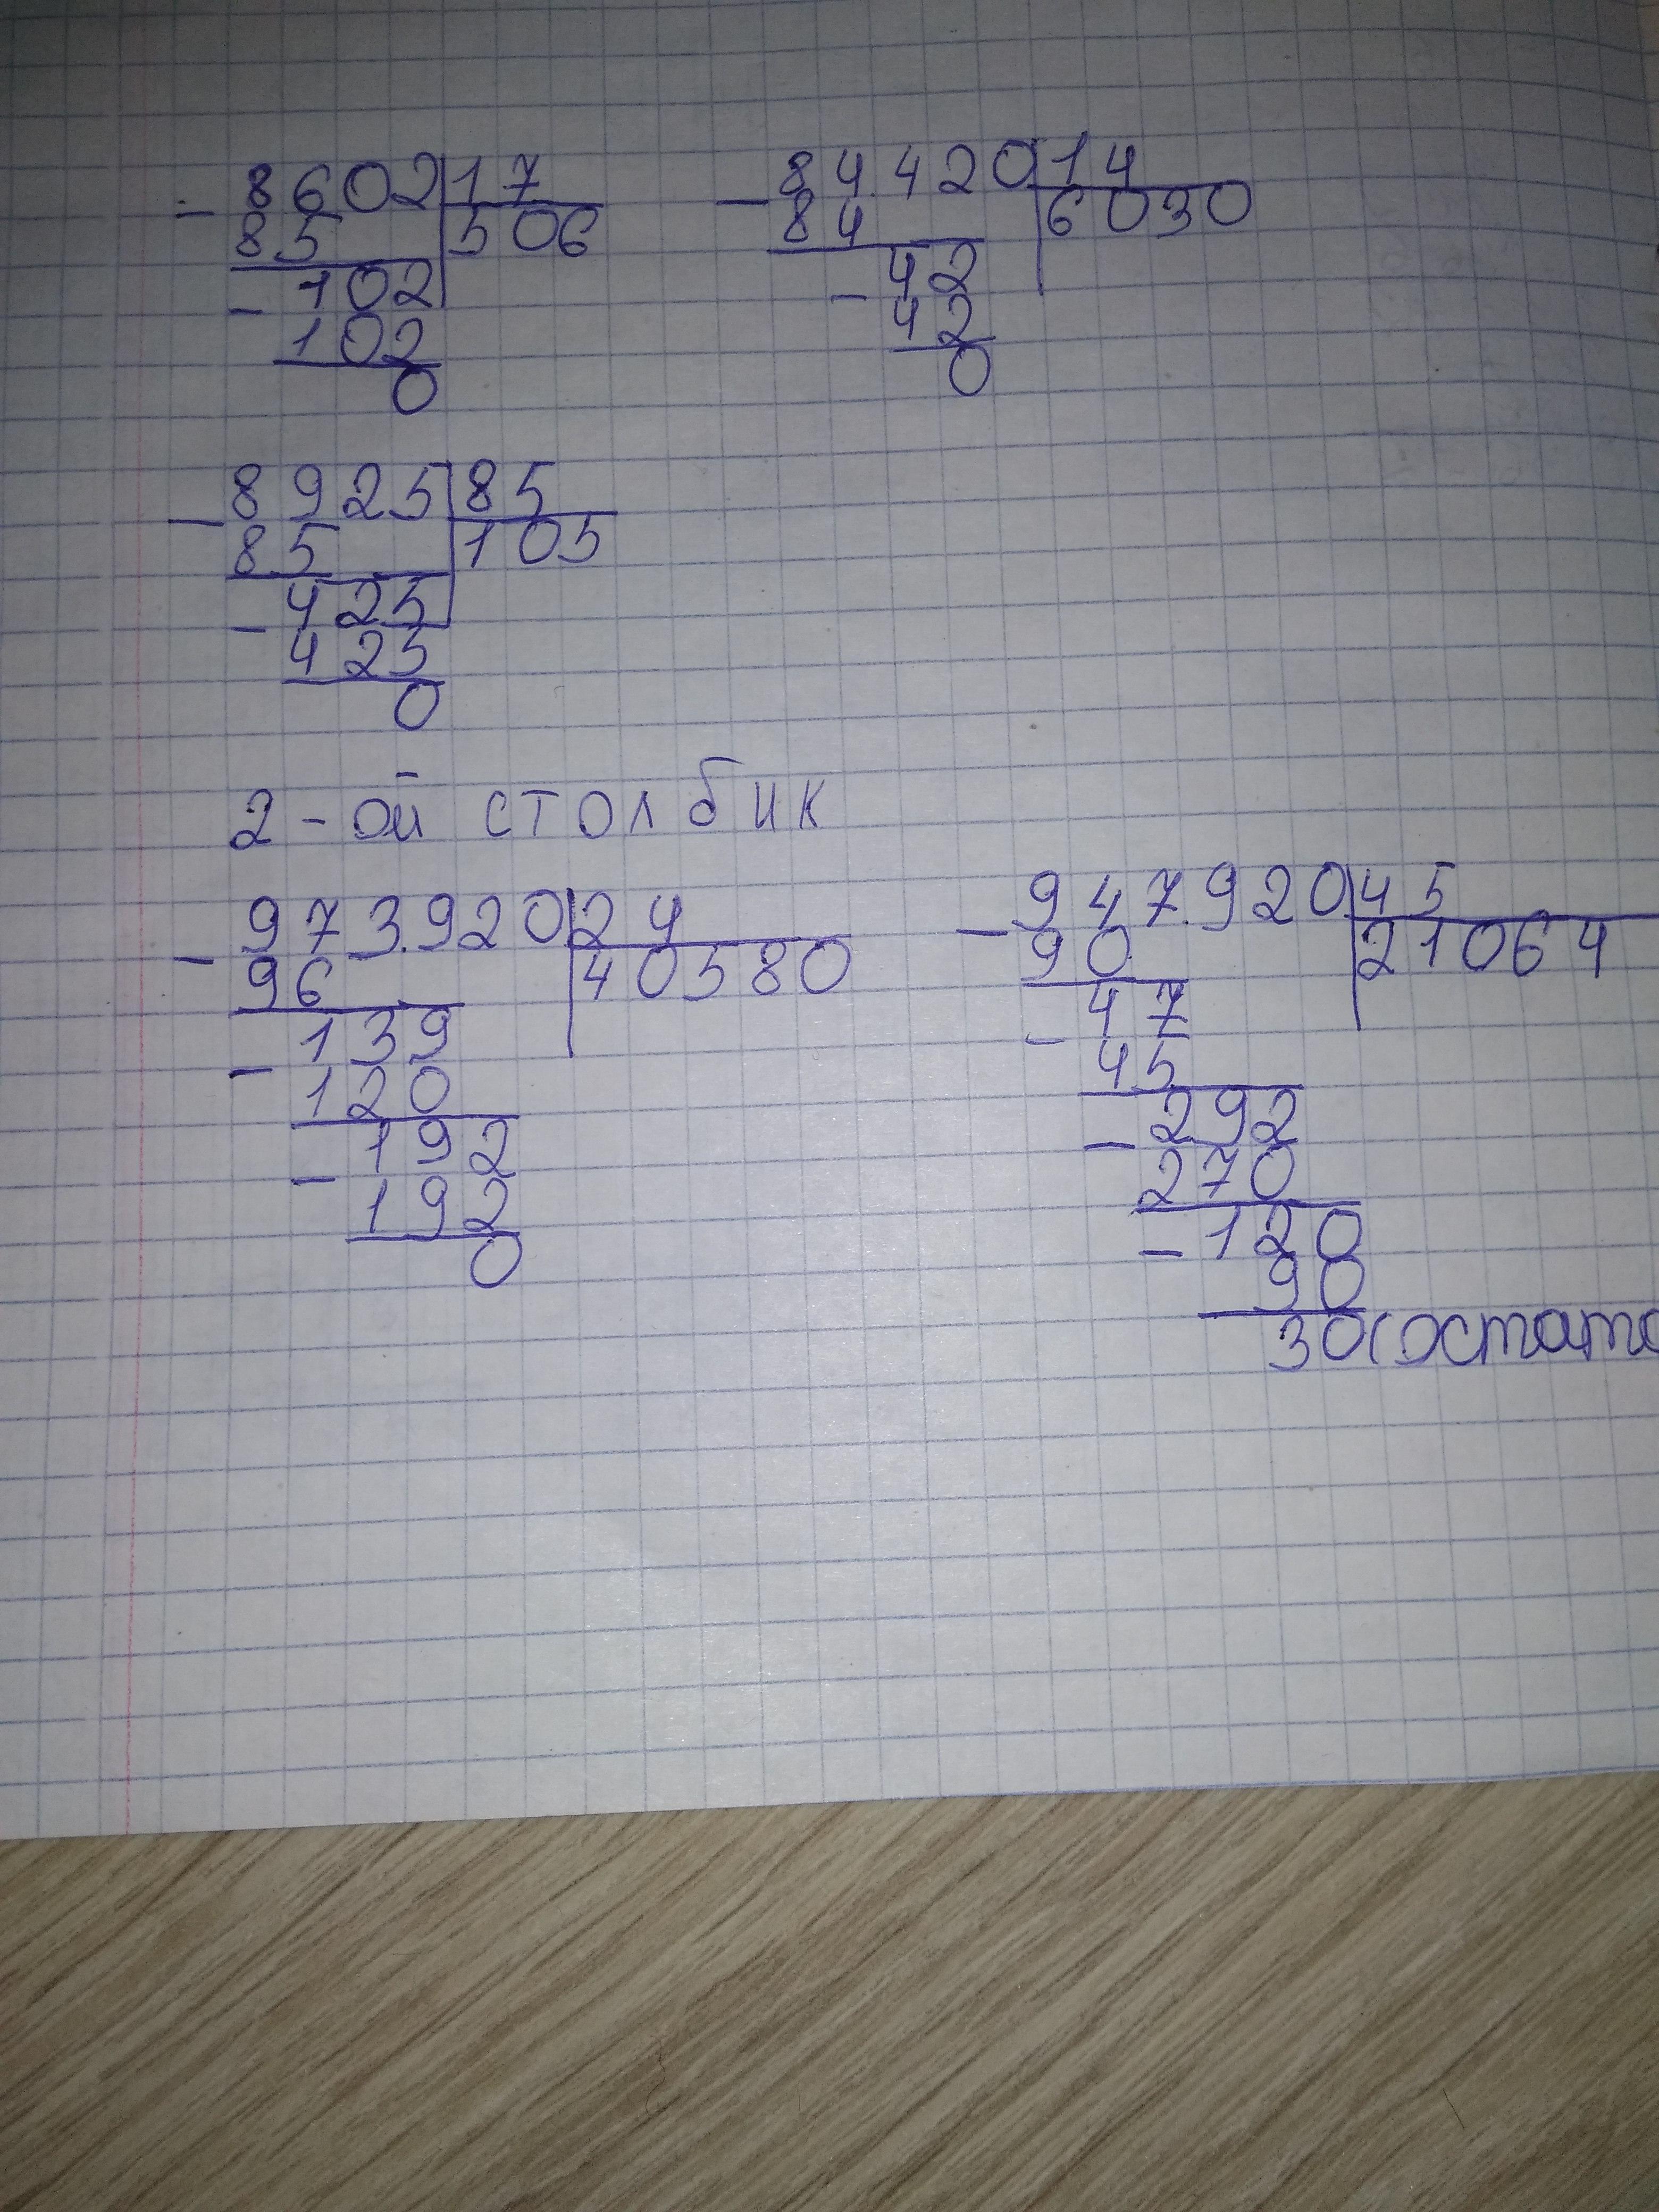 8602 17
85 506
102
102
0
84.420 14
84 6030
42
42
0
8925 85
85 105
425
425
0
2-ой столбик
973.920 24
96 40580
139
120
192
192
0
947.920 45
90 21064
47
45
292
270
120
90
30(остато